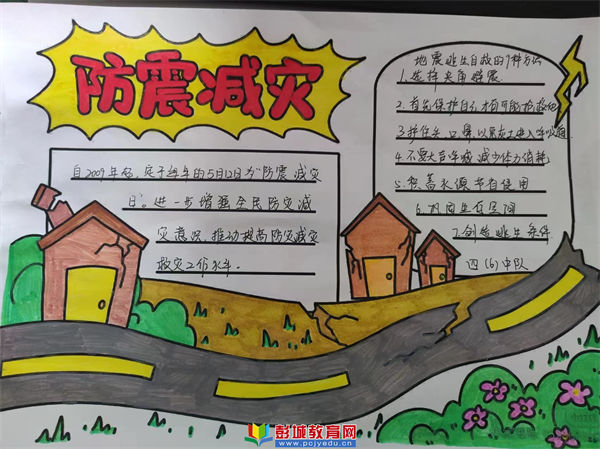 防震减灾
自2009年起，定于每年的5月12日为“防震减灾
日”。进一步增强全民防灾减
灾意识，推动提高防灾减灾
救灾工作水平。
地震逃生自救的7种方法
1.选择夹角避震
2.首先保护自己才有可能抢救他
3.护住头口鼻以免灰土进入呼吸道
4.不要大声呼喊 减少体力消耗
5.积蓄水源节省使用
6.巩固生存空间
7.创造逃生条件
四（6）中队
彭城教育网
www.pcjyedu.cn